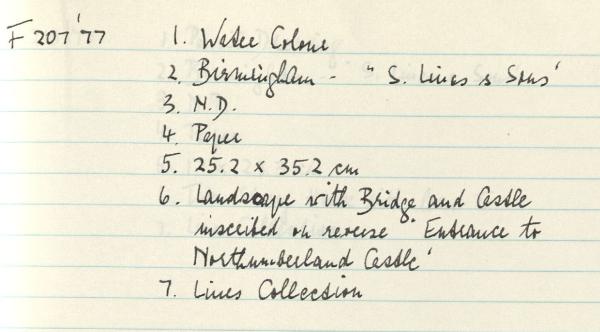 F 207'77 1. Water Colour
2. Birmingham - "S. Lines & Sons'
3. N.D.
4. Paper
5. 25.2 x 35.2 cm
6. Landscape with Bridge and Castle
inscribed on reverse 'Entrance to
Northumberland Castle'
7. Lines Collection